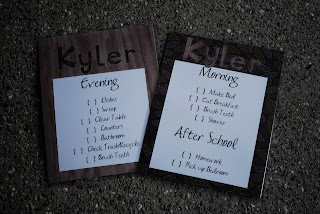 Kyler
Evening
( ) Dishes
( ) Sweep
( ) Clear Table
( ) Counters
( ) Bathroom
( ) Check Trash/Recycle
( ) Brush Teeth
Kyler
Morning
( ) Make Bed
( ) Eat Breakfast
( ) Brush Teeth
( ) Shower
After School
( ) Homework
( ) Pick up Bedroom